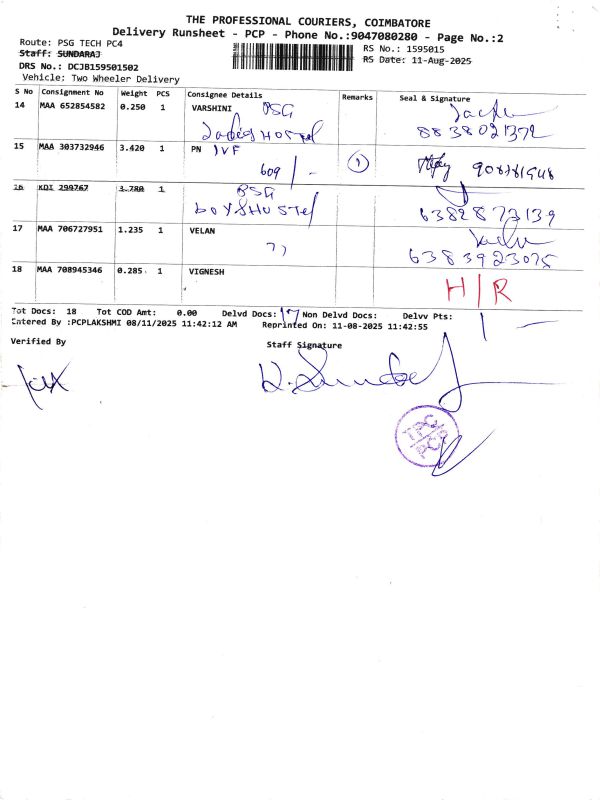 THE PROFESSIONAL COURIERS, COIMBATORE
Delivery Runsheet - PCP - Phone No.:9047080280 - Page No.:2
Route: PSG TECH PC4 RS No.: 1595015
Staff: SUNDARAJ RS Date: 11-Aug-2025
DRS No.: DCJB159501502
Vehicle: Two Wheeler Delivery
S No Consignment No Weight PCS Consignee Details Remarks Seal & Signature
14 MAA 652854582 0.250 1 VARSHINI PSG
Ladies Hostel 8838021372
15 MAA 303732946 3.420 1 PN IVF 1
609/-
16 KDI 299767 3.780 1 PSG
boys Hostel 6382873139
17 MAA 706727951 1.235 1 VELAN
,, 6383923075
18 MAA 708945346 0.285 1 VIGNESH H/R
Tot Docs: 18 Tot COD Amt: 0.00 Delvd Docs: 17 Non Delvd Docs: 1 Delvv Pts:
Entered By :PCPLAKSHMI 08/11/2025 11:42:12 AM Reprinted On: 11-08-2025 11:42:55
Verified By Staff Signature